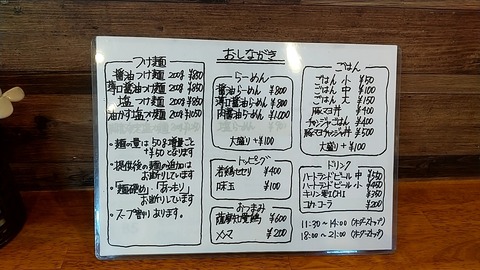 おしながき
つけ麺
醤油つけ麺 200g ¥850
薄口醤油つけ麺 200g ¥850
塩つけ麺 200g ¥850
油かす塩つけ麺 200g ¥1050
・麺の量は50g増量ごと
+¥50となります
・提供後の麺の追加は
お断りしています
・「麺硬め」「あつもり」
お断りしています
・スープ割りあります。
らーめん
醤油らーめん ¥800
薄口醤油らーめん ¥800
肉醤油らーめん ¥1,000
大盛り +¥100
トッピング
若鶏せせり ¥400
味玉 ¥100
おつまみ
薩摩知覧鶏 ¥600
メンマ ¥200
ごはん
ごはん 小 ¥50
ごはん 中 ¥100
ごはん 大 ¥150
豚マヨ丼 ¥400
チャンジャごはん ¥400
豚マヨチャンジャ丼 ¥500
大盛り +¥100
ドリンク
ハートランドビール 中
ハートランドビール 小
キリン 零ICHI ¥350
コカ・コーラ ¥200
11:30〜14:00 (オーダーストップ)
18:00〜21:00 (オーダーストップ)